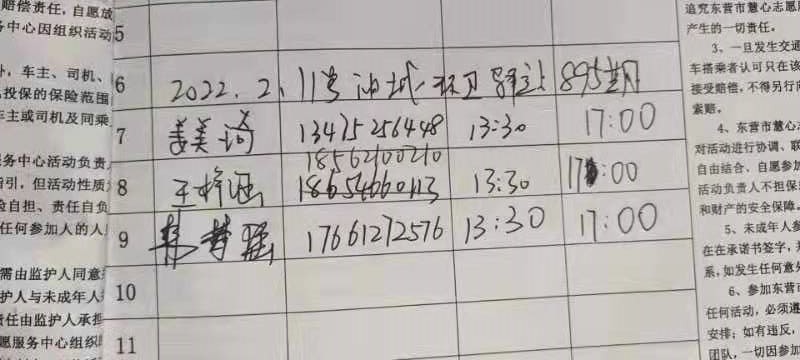 赔偿责任，自愿放
务中心因组织活动
外，车主、司机、
投保的保险范围
车主或司机及同乘
服务中心活动负责人
指引，但活动性质
险自担、责任自负
任何参加人的人
需由监护人同意
护人与未成年人
责任由监护人承担
愿服务中心组织
5
6 2022.2.11号 油城环卫驿站 895期
7 姜美 13475256448 13:30 17:00
18562100210
8 王梓涵 18654660113 13:30 17:00
9 17661272576 13:30 17:00
10
11
追究东营市慧心志愿
产生的一切责任。
3、一旦发生交通
车搭乘者认可只在该
接受赔偿，不得另行
索赔。
4、东营市慧心志
对活动进行协调、联
自由结合、自愿参加
活动负责人不担保
和财产的安全保障。
5、未成年人参
在在承诺书签字，
系，如发生任何意外
6、参加东营市
任何活动，必须遵
安排；如有违反，
团队，一切因参加